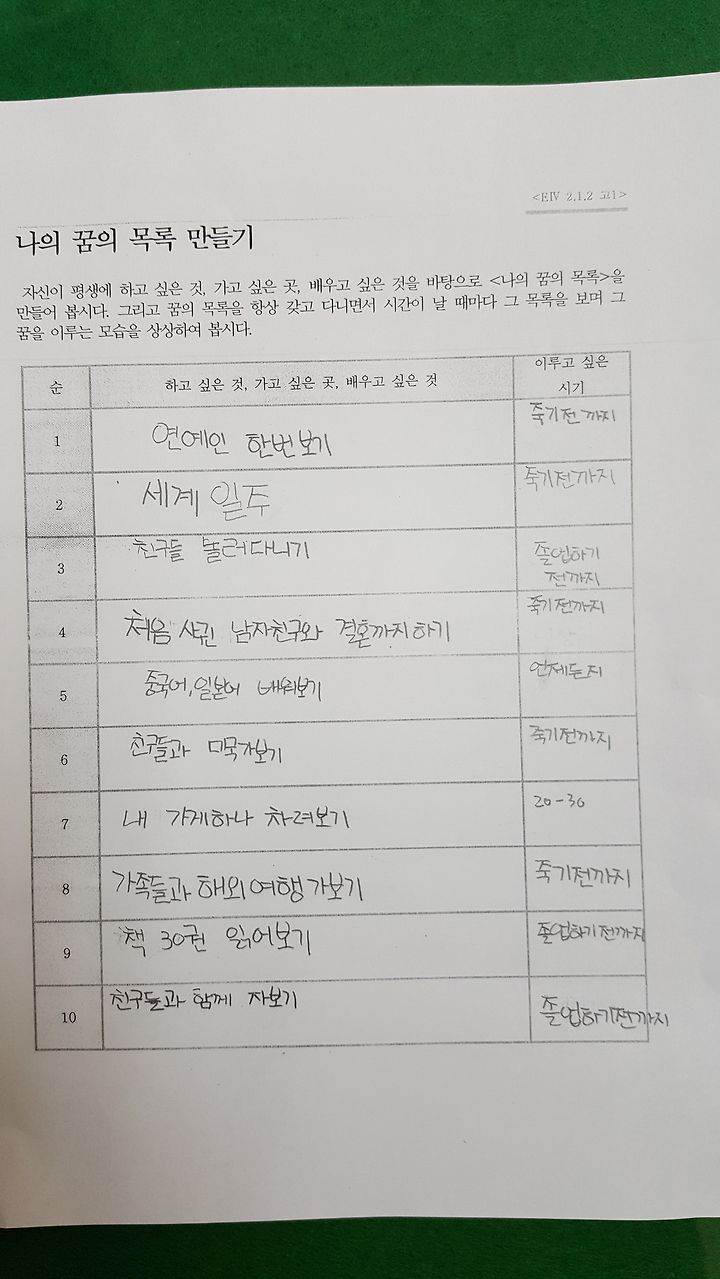 <EIV 2.1.2 고1>
나의 꿈의 목록 만들기
자신이 평생에 하고 싶은 것, 가고 싶은 곳, 배우고 싶은 것을 바탕으로 <나의 꿈의 목록>을
만들어 봅시다. 그리고 꿈의 목록을 항상 갖고 다니면서 시간이 날 때마다 그 목록을 보며 그
꿈을 이루는 모습을 상상하여 봅시다.
순 하고 싶은 것, 가고 싶은 곳, 배우고 싶은 것 이루고 싶은
시기
1 연예인 한번보기 죽기전까지
2 세계 일주 죽기전까지
3 친구들 놀러다니기 졸업하기
전까지
4 처음 사귄 남자친구와 결혼까지하기 죽기전까지
5 중국어, 일본어 배워보기 언제든지
6 친구들과 미국가보기 죽기전까지
7 내 가게하나 차려보기 20-30
8 가족들과 해외여행가보기 죽기전까지
9 책 30권 읽어보기 졸업하기전까지
10 친구들과 함께 자보기 졸업하기전까지